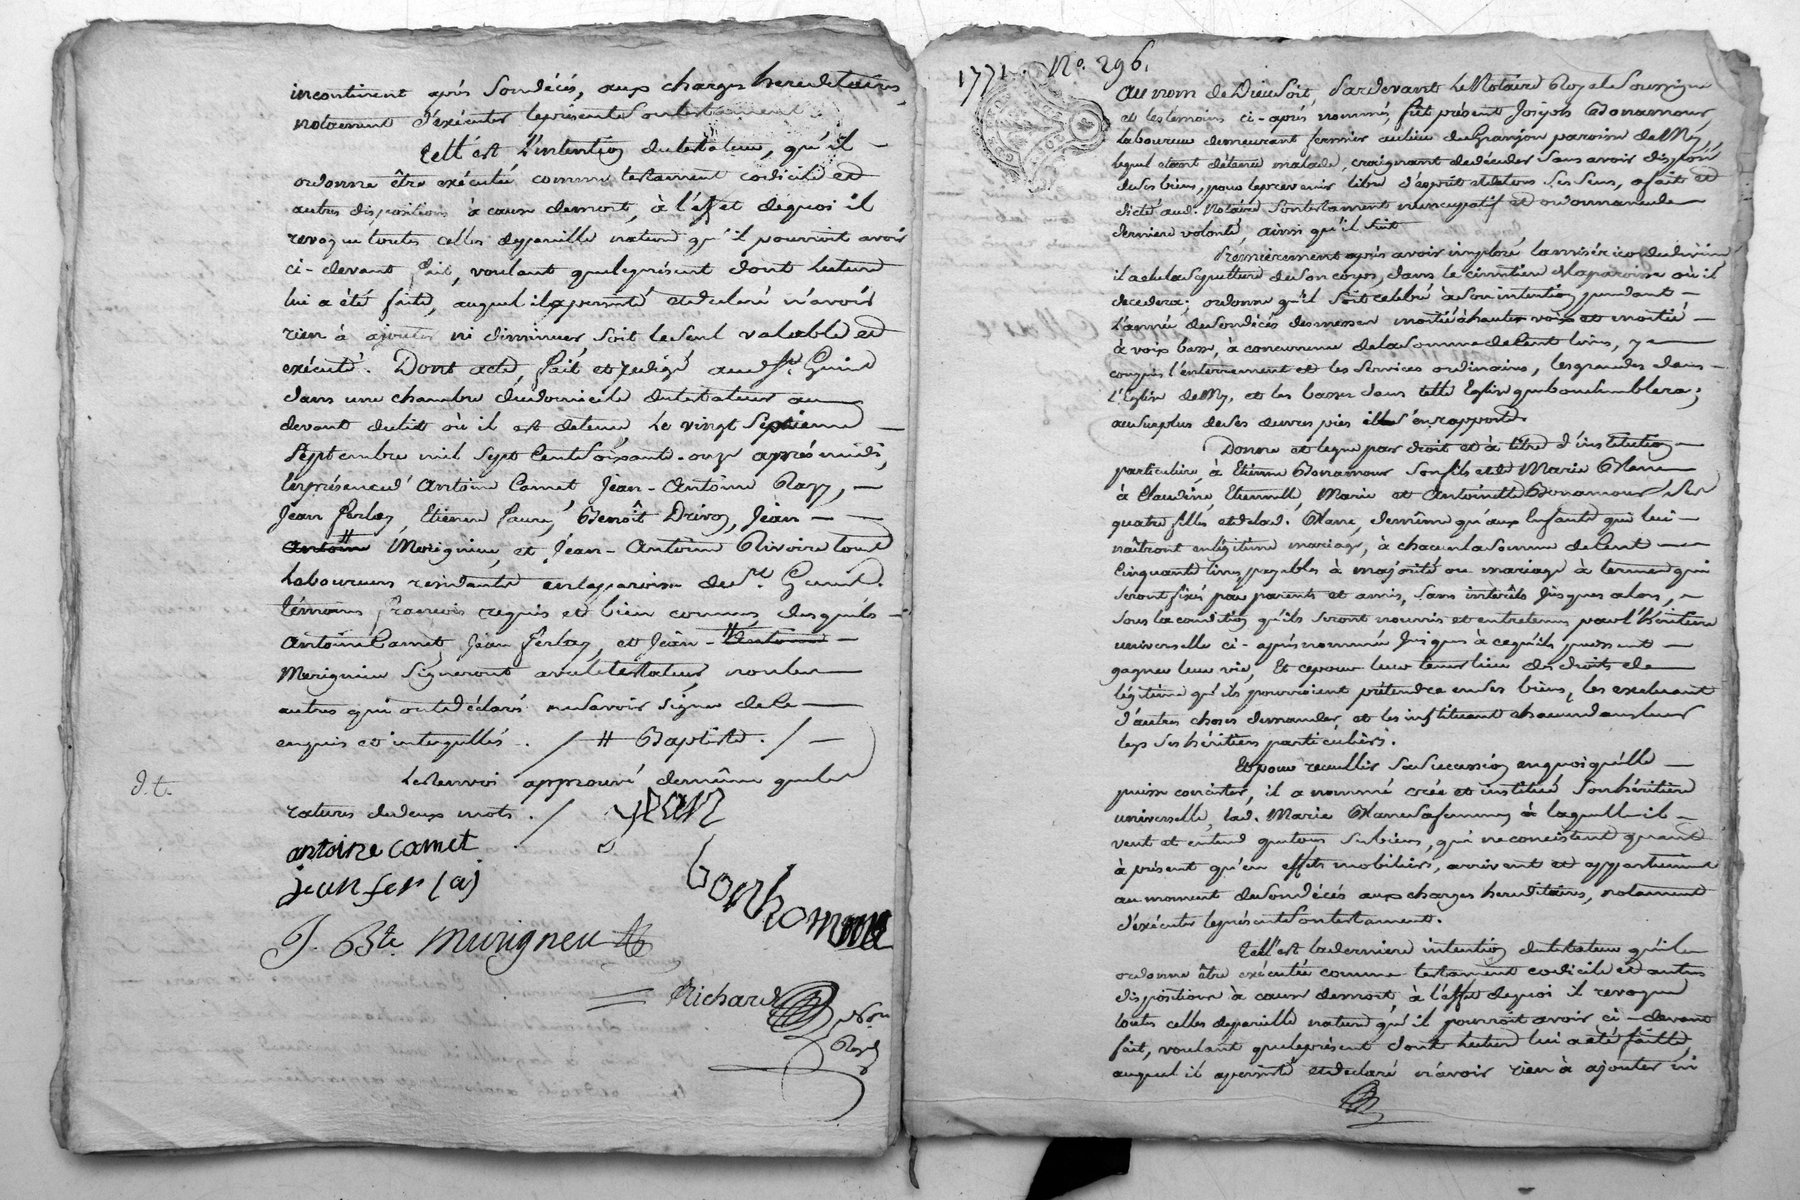 incontinent après son décés, aux charges hereditaires,
notament d'éxécuter le présent son testament
Tell' est L'intention du testateur, qu'il
ordonne être exécutée comme testament codicile et
autres dispositions à cause de mort, à l'effet de quoi il
revoque toutes celles de pareille nature qu'il pourroit avoir
ci-devant fait, voulant que le présent dont Lecture
lui a été faite, auquel il a persisté et declaré n'avoir
rien à ajouter ni diminuer, soit le seul valable et
exécuté. Dont acte, fait et redigé aud. St. Genis
dans une chambre du domicile du testateur au
devant du lit où il est detenu Le vingt Septieme
Septembre mil sept Cent soixante-onze après midi,
En présence d'Antoine Camet, Jean-Antoine Ragy,
Jean ferlay, Etienne faure, Benoît Drivon, Jean
Antoine Merigneu, et Jean-Antoine Rivoire tous
Laboureurs residants en la paroisse de St. Genis.
témoins françois requis et bien connus, desquels
Antoine Camet, Jean ferlay, et Jean-Antoine
Merigneu signeront avec le testateur, non les
autres qui ont declaré ne savoir signer de ce
enquis et interpellés. / # Baptiste. /
Le Renvoi approuvé de même que les
d.t.
ratures de deux mots. / Jean
antoine camet
jean fer(a)
bonhomme
J. Bte. Murigneu
Richard
Nore
Royal
1771. No. 296.
Au nom de Dieu soit Pardevant Le Notaire Royal Soussigné
et les témoins ci-après nommés fût présent Joseph Bonamour,
Laboureur demeurant fermier au lieu de Granjon paroisse de
lequel étant détenu malade, craignant de decéder sans avoir disposé
de ses biens, pour le prevenir libre d'esprit et de tous ses sens, a fait et
dicté aud. Notaire son testament nuncupatif et ordonnance de
derniere volonté, ainsi qu'il suit
Premierement après avoir imploré la miséricorde divine
il a elu la sepulture de son corps, dans le cimetiere de la paroisse où il
decedera; ordonne qu'il soit celebré à son intention pendant
L'année de son décés des messes moitié à haute voix et moitié
à voix basse, à concurrence de la somme de Cent livres, y
compris l'enterrement et les services ordinaires, les grandes dans
L'Eglise de, et les basses dans telle Eglise que bon semblera;
au surplus de ses œuvres pies il s'en rapporte
Donne et legue par droit et à titre d'institution
particuliere, à Etienne Bonamour son fils et de Marie
à Claudine, Etiennette, Marie et Antoinette Bonamour ses
quatre filles et de lad., de même qu'aux Enfants qui lui
naîtront en légitime mariage, à chacun la somme de Cent
Cinquante livres payables à majorité ou mariage à termes qui
seront fixés par parents et amis, sans intérêts jusques alors,
sous la condition qu'ils seront nourris et entretenus par l'héritiere
universelle ci-après nommée jusques à ce qu'ils puissent
gagner leur vie, Et ce pour leur tenir lieu des droits de
légitime qu'ils pourroient prétendre en ses biens, les excluant
d'autres choses demander, et les instituant chacun dans leur
legs ses héritiers particuliers.
Et pour recueillir sa succession en quoi qu'elle
puisse consister, il a nommé créé et institué son héritiere
universelle, lad. Marie sa femme, à laquelle il
veut et entend que tous ses biens, qui ne consistent quant
à présent qu'en effets mobiliers, arrivent et appartiennent
au moment de son décés aux charges hereditaires, notament
d'éxécuter le présent son testament.
Tell' est la derniere intention du testateur qu'il
ordonne être exécutée comme testament codicile et autres
dispositions à cause de mort, à l'effet de quoi il revoque
toutes celles de pareille nature qu'il pourroit avoir ci-devant
fait, voulant que le présent dont Lecture lui a été faitte,
auquel il a persisté et declaré n'avoir rien à ajouter ni